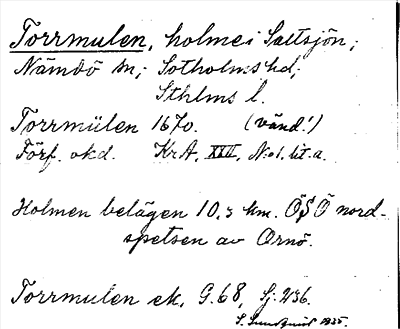 Torrmulen, holme i Saltsjön;
Nämdö sn; Sotholms hd;
Sthlms l.
Torrmülen 1670. (vänd!)
Förf. okd. Kr.A. XXII, N:o 1. lit. a.
Holmen belägen 10,5 km. ÖSÖ nord-
spetsen av Ornö.
Torrmulen ek. G.68, Sj. 236.
S. Sundquist 1935.